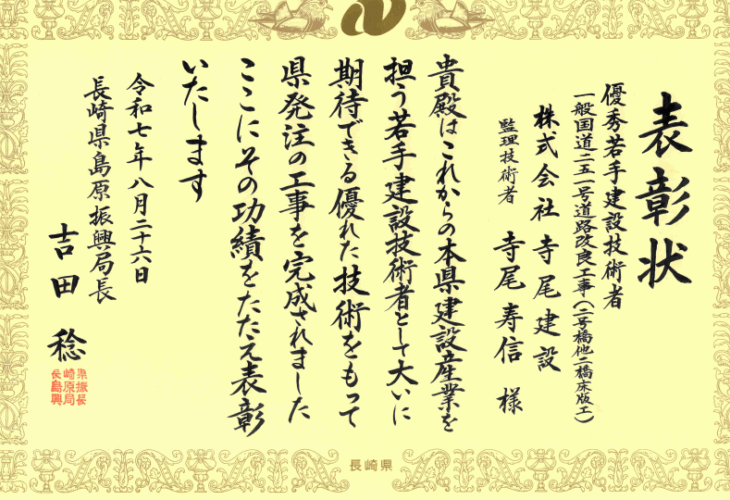 表彰状
優秀若手建設技術者
一般国道二五一号道路改良工事(二号橋他二橋床版工)
株式会社 寺尾建設
監理技術者 寺尾寿信 様
貴殿はこれからの本県建設産業を
担う若手建設技術者として大いに
期待できる優れた技術をもって
県発注の工事を完成されました
ここにその功績をたたえ表彰
いたします
令和七年八月二十六日
長崎県島原振興局長
吉田 稔
長崎県